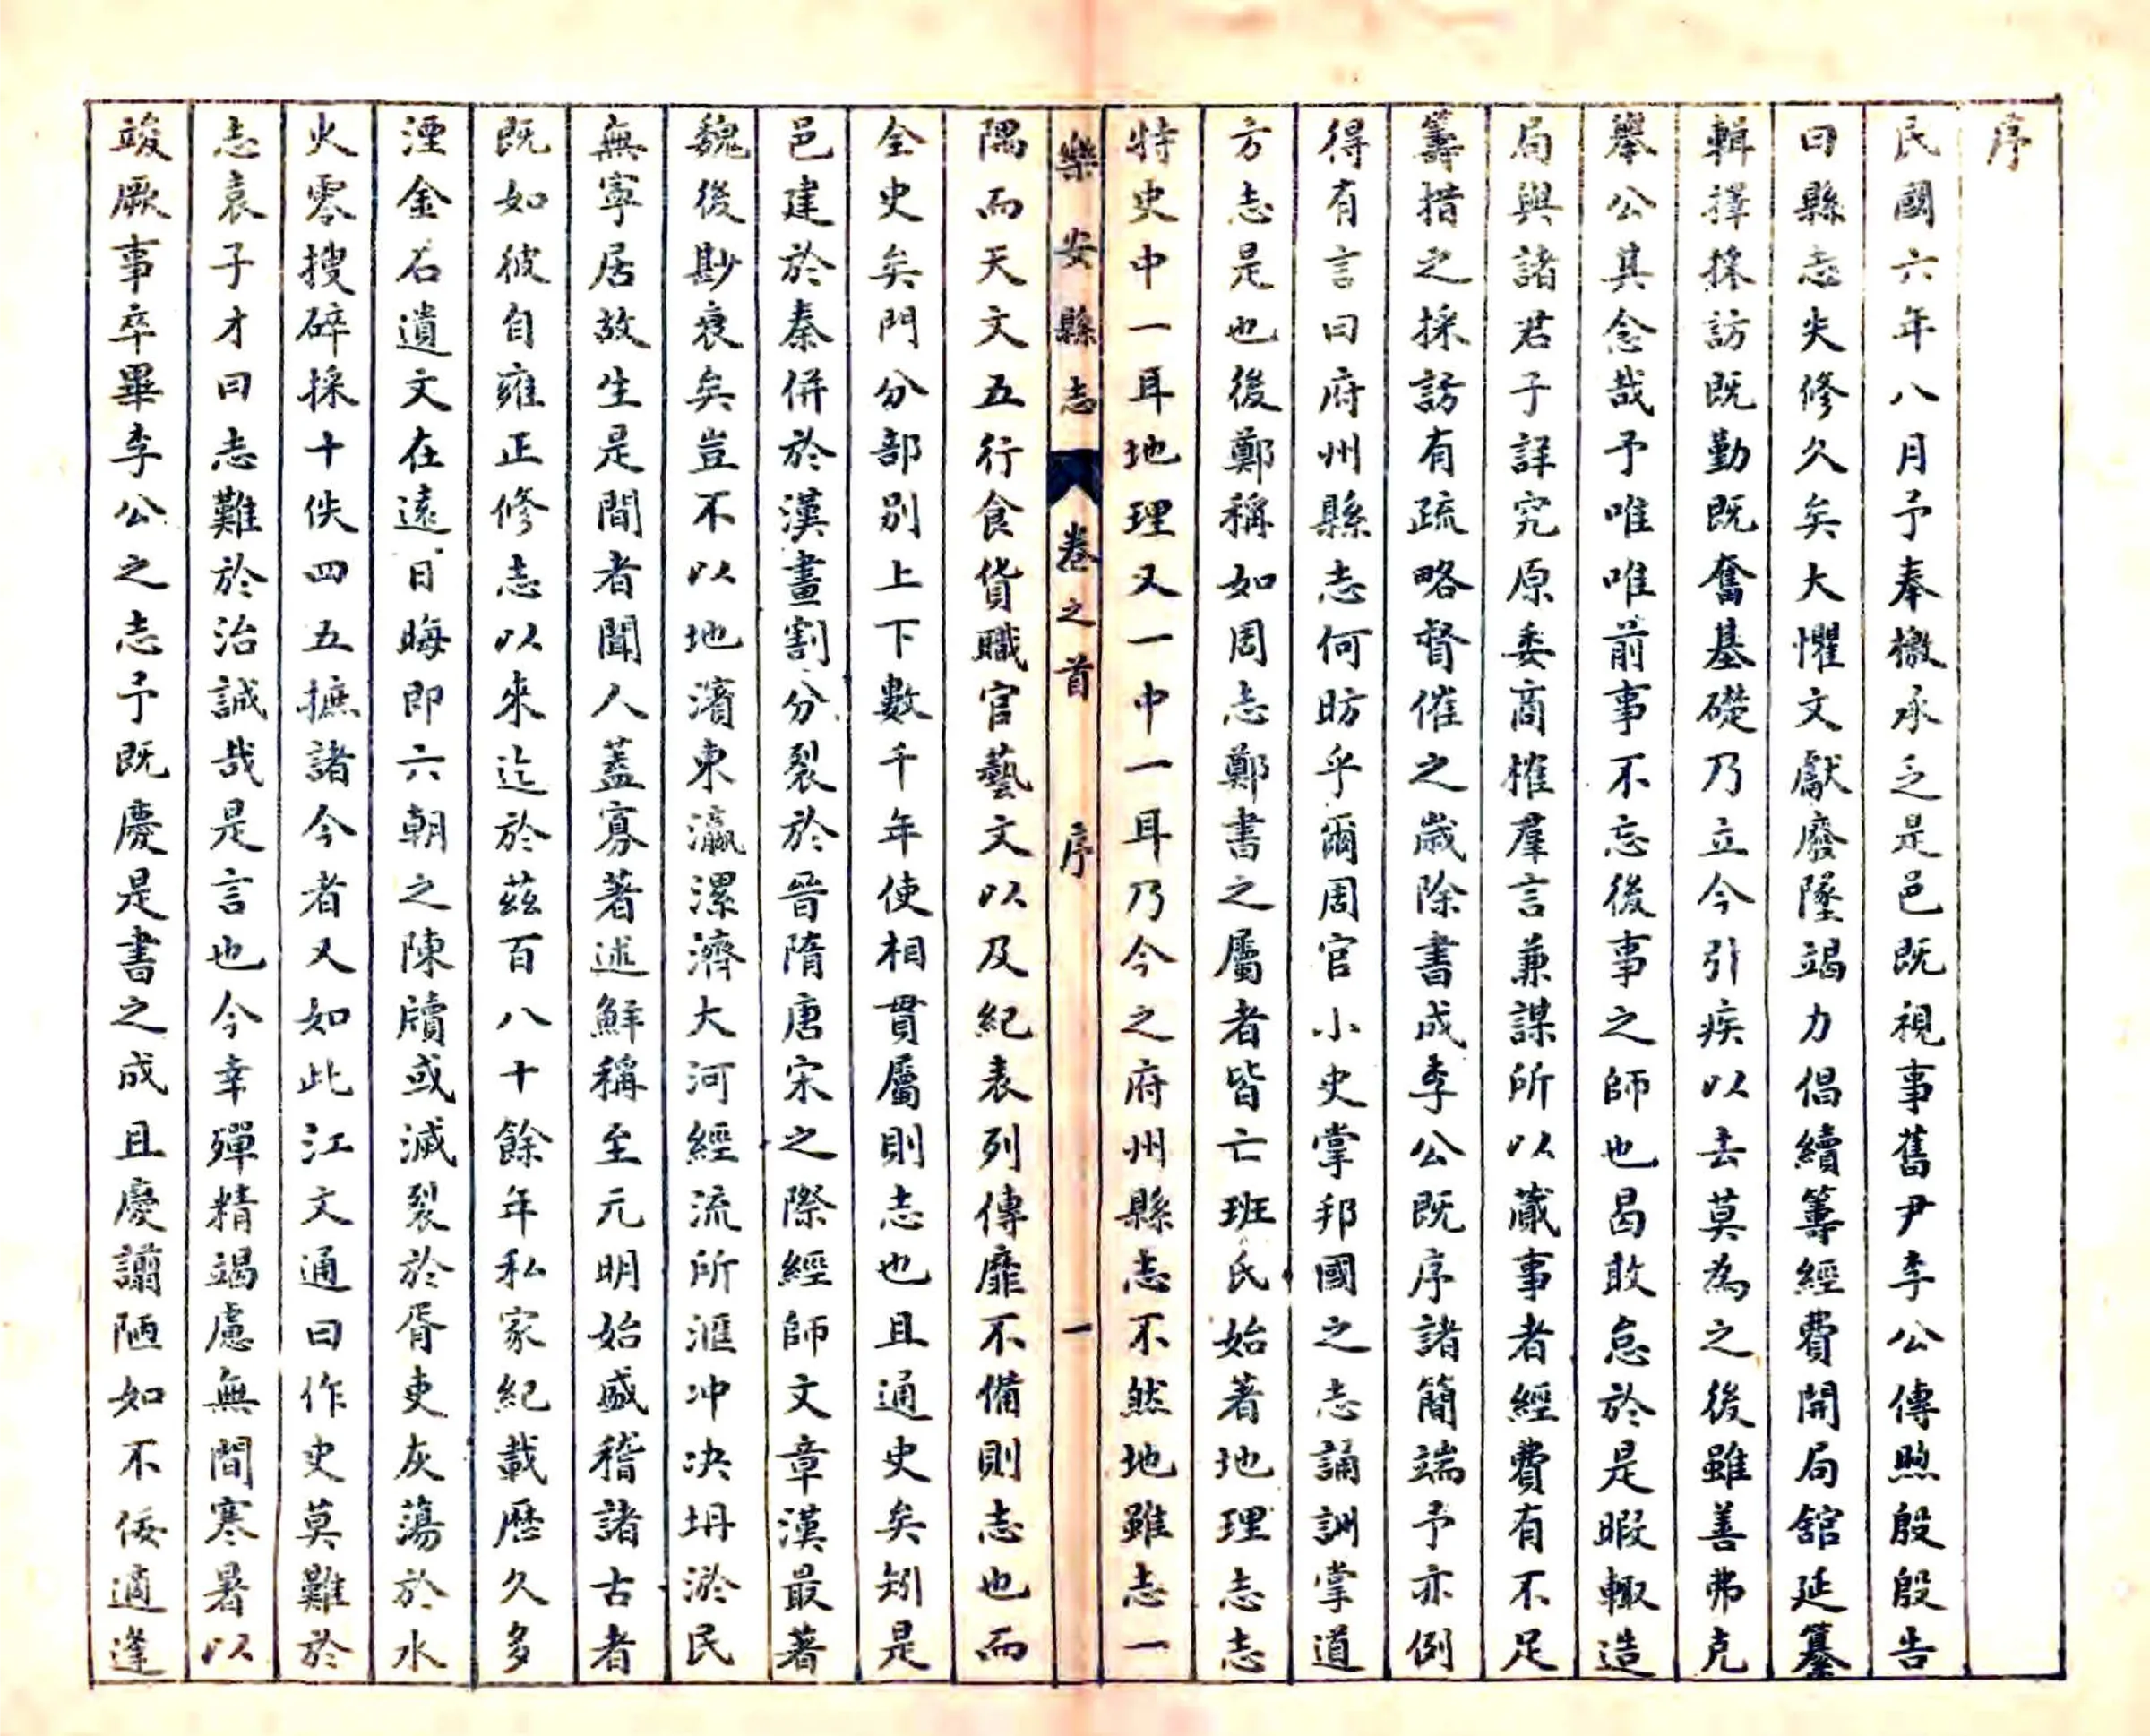 序
民國六年八月予奉檄承乏是邑既視事舊尹李公傳煦殷殷告
曰縣志失修久矣大懼文獻廢墜竭力倡續籌經費開局舘延纂
輯擇採訪既勤既奮基礎乃立今引疾以去莫為之後雖善弗克
舉公其念哉予唯唯前事不忘後事之師也曷敢怠於是暇輙造
局與諸君子詳究原委商榷羣言兼謀所以蕆事者經費有不足
籌措之採訪有疏略督催之歲除書成李公既序諸簡端予亦例
得有言曰府州縣志何昉乎爾周官小史掌邦國之志誦訓掌道
方志是也後鄭稱如周志鄭書之屬者皆亡班氏始著地理志志
特史中一耳地理又一中一耳乃今之府州縣志不然地雖志一
樂安縣志 卷之首 序 一
隅而天文五行食貨職官藝文以及紀表列傳靡不備則志也而
全史矣門分部別上下數千年使相貫屬則志也且通史矣矧是
邑建於秦併於漢畫割分裂於晉隋唐宋之際經師文章漢最著
魏後尠衰矣豈不以地濱東瀛漯濟大河經流所滙冲决坍淤民
無寧居故生是間者聞人蓋寡著述鮮稱至元明始盛稽諸古者
既如彼自雍正修志以來迄於茲百八十餘年私家紀載歷久多
湮金石遺文在遠日晦即六朝之陳牘或滅裂於胥吏灰蕩於水
火零搜碎採十佚四五摭諸今者又如此江文通曰作史莫難於
志袁子才曰志難於治誠哉是言也今幸殫精竭慮無間寒暑以
竣厥事卒畢李公之志予既慶是書之成且慶譾陋如不佞適逢